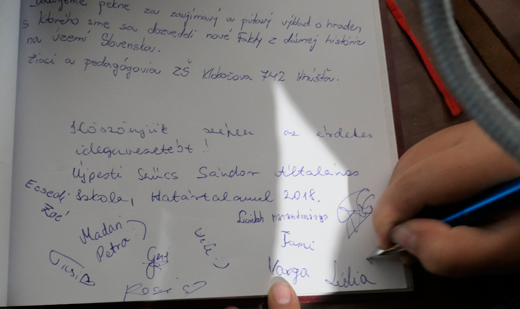 Ďakujeme pekne za zaujímavý a pútavý výklad o hrade,
z ktorého sme sa dozvedeli nové fakty z dávnej histórie
na území Slovenska.
Žiaci a pedagógovia ZŠ 742
Köszönjük szépen az érdekes
idegenvezetést!
Újpesti Szűcs Sándor Általános
Iskola, Határtalanul 2018.
Ecsedi
Zoé
Madari
Petra
Geri
Viki :)
Fami
Varga Lídia